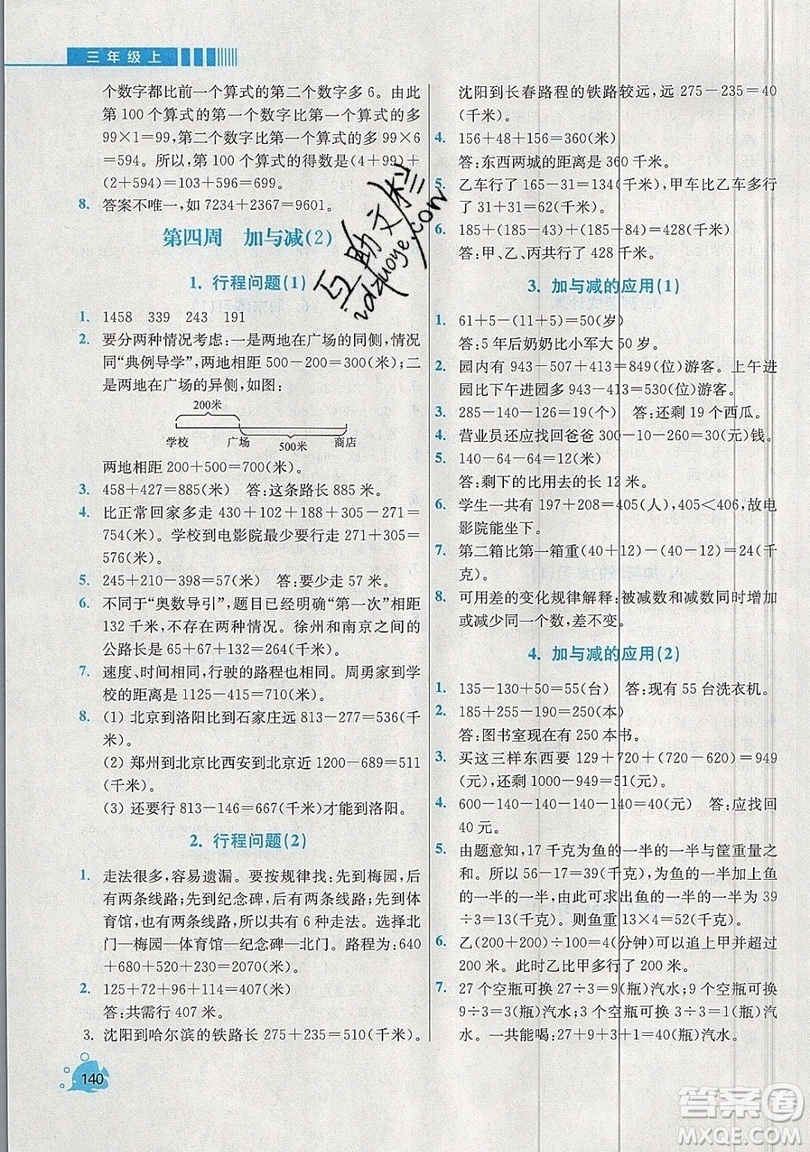 三年级上
个数字都比前一个算式的第二个数字多6。由此
第100个算式的第一个数字比第一个算式的多
99×1=99,第二个数字比第一个算式的多99×6
=594。所以,第100个算式的得数是(4+99)+
(2+594)=103+596=699。
8. 答案不唯一,如7234+2367=9601。
第四周 加与减(2)
1. 行程问题(1)
1. 1458 339 243 191
2. 要分两种情况考虑:一是两地在广场的同侧,情况
同“典例导学”,两地相距500-200=300(米);二
是两地在广场的异侧,如图:
200米
学校 广场 500米 商店
两地相距200+500=700(米)。
3. 458+427=885(米) 答:这条路长885米。
4. 比正常回家多走430+102+188+305-271=
754(米)。学校到电影院要行走271+305=
576(米)。
5. 245+210-398=57(米) 答:要少走57米。
6. 不同于“奥数导引”,题目已经明确“第一次”相距
132千米,不存在两种情况。徐州和南京之间的
公路长是65+132+65+72=334(千米)。
7. 速度、时间相同,行驶的路程也相同。周勇家到学
校的距离是1125-415=710(米)。
8. (1) 北京到洛阳比到石家庄远813-277=536(千
米)。
(2) 郑州到北京比西安到北京近1200-689=511
(千米)。
(3) 还要行813-146=667(千米)才能到洛阳。
2. 行程问题(2)
1. 走法很多,容易遗漏。要按规律找:先到梅园,后
有两条线路;先到纪念碑,后有两条线路;先到体
育馆,也有两条线路,所以共有6种走法。选择北
门—梅园—体育馆—纪念碑—北门。路程为:640
+680+520+230=2070(米)。
2. 125+72+96+114=407(米)
答:共需行407米。
3. 沈阳到哈尔滨的铁路长275+235=510(千米)。
沈阳到长春路程的铁路较远,远275-235=40
(千米)。
4. 156+48+156=360(米)
答:东西两城的距离是360千米。
5. 乙车行了165-31=134(千米),甲车比乙车多行
了31+31=62(千米)。
6. 185+(185-43)+(185-84)=428(千米)
答:甲、乙、丙共行了428千米。
3. 加与减的应用(1)
1. 61+5-(11+5)=50(岁)
答:5年后奶奶比小军大50岁。
2. 园内有943-507+413=849(位)游客。上午进
园比下午进园多943-413=530(位)游客。
3. 285-140-126=19(个) 答:还剩19个西瓜。
4. 营业员还应找回爸爸300-10-260=30(元)钱。
5. 140-64-64=12(米)
答:剩下的比用去的长12米。
6. 学生一共有197+208=405(人),405<406,故电
影院能坐下。
7. 第二箱比第一箱重(40+12)-(40-12)=24(千
克)。
8. 可用差的变化规律解释:被减数和减数同时增加
或减少同一个数,差不变。
4. 加与减的应用(2)
1. 135-130+50=55(台) 答:现有55台洗衣机。
2. 185+255-190=250(本)
答:图书室现在有250本书。
3. 买这三样东西要129+720+(720-620)=949
(元),还剩1000-949=51(元)。
4. 600-140-140-140-140=40(元) 答:应找回
40元。
5. 由题意知,17千克为鱼的一半与筐重量之
和。根据“一半”的含义,由此可求出鱼的一半为56
-17=39(千克)。则鱼重39×2=78(千克)。
6. 乙(200+200)÷100=4(分钟)可以追上甲并超过
200米。此时乙比甲多行了200米。
7. 27个空瓶可换27÷3=9(瓶)汽水;9个空瓶可换
9÷3=3(瓶)汽水;3个空瓶可换3÷3=1(瓶)汽
水。一共能喝:27+9+3+1=40(瓶)汽水。
140
互助文栏
答案圈
MXQE.COM